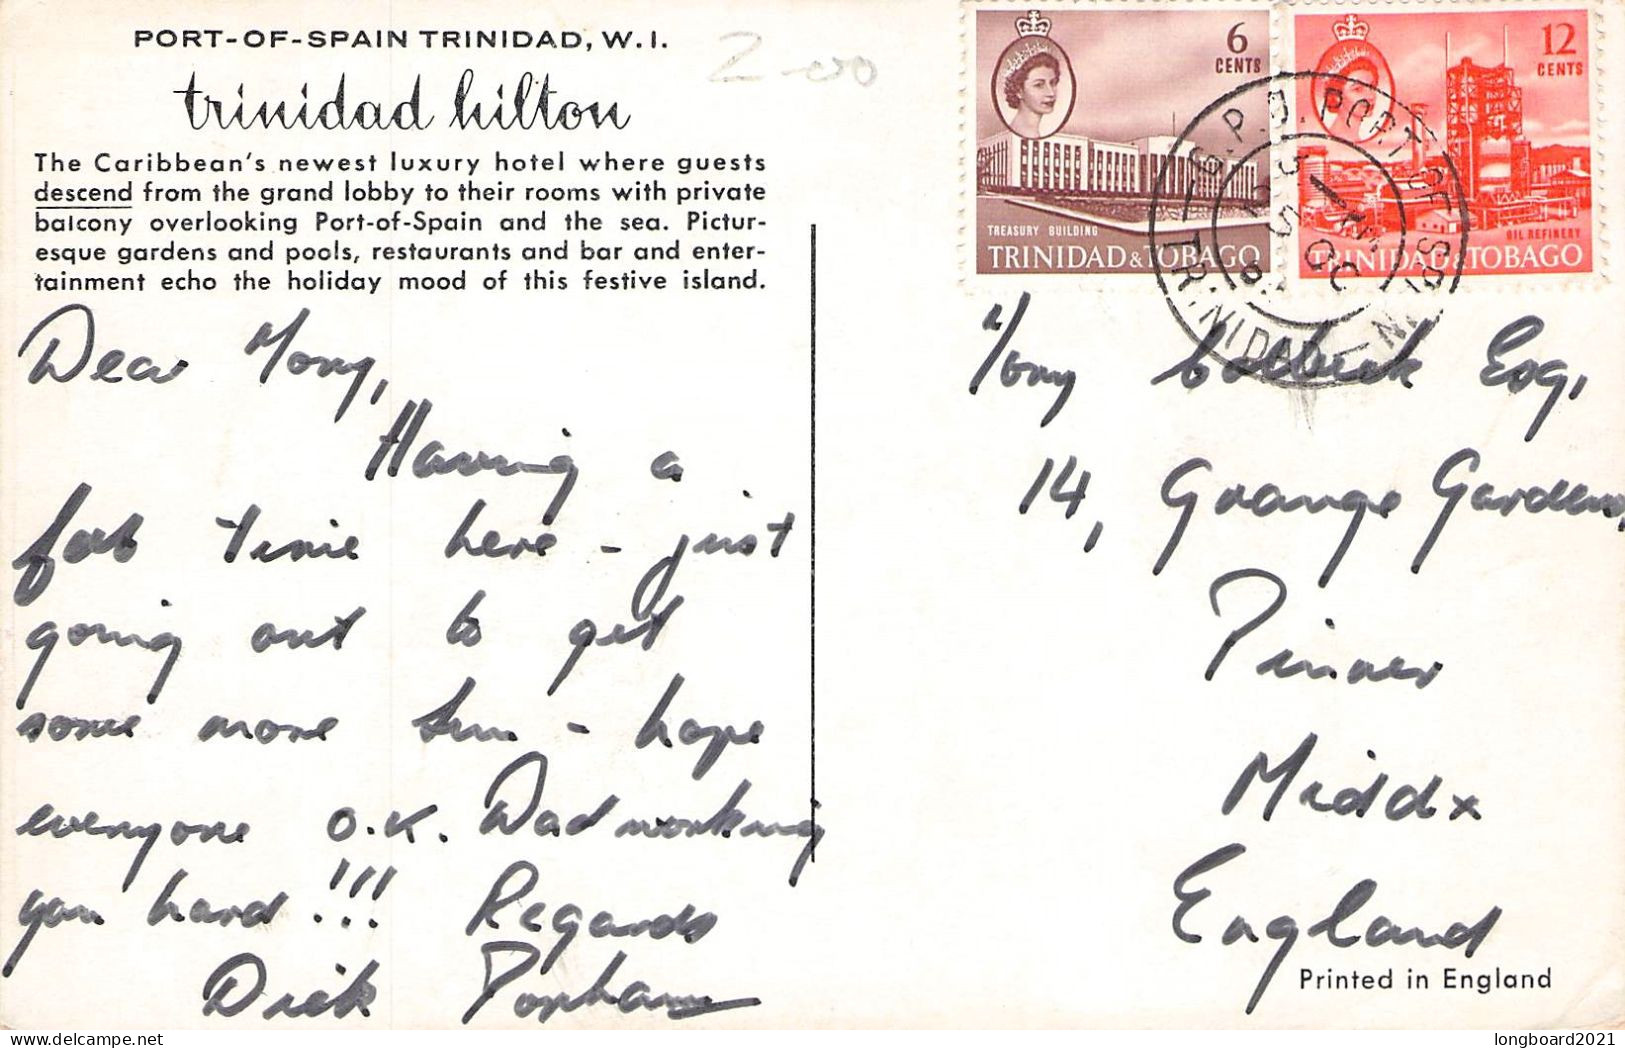 PORT-OF-SPAIN TRINIDAD, W.I.
trinidad hilton
The Caribbean's newest luxury hotel where guests
descend from the grand lobby to their rooms with private
balcony overlooking Port-of-Spain and the sea. Pictur-
esque gardens and pools, restaurants and bar and enter-
tainment echo the holiday mood of this festive island.
Dear Tony,
Having a
fab time here - just
going out to get
some more sun - hope
everyone O.K. Dad working
you hard!!! Regards
Dick
6
CENTS
TREASURY BUILDING
TRINIDAD & TOBAGO
12
CENTS
OIL REFINERY
TRINIDAD & TOBAGO
G.P.O. PORT OF SPAIN
TRINIDAD
Tony Esq,
14, Grange Gardens,
Pinner
Middx
England
Printed in England
longboard2021